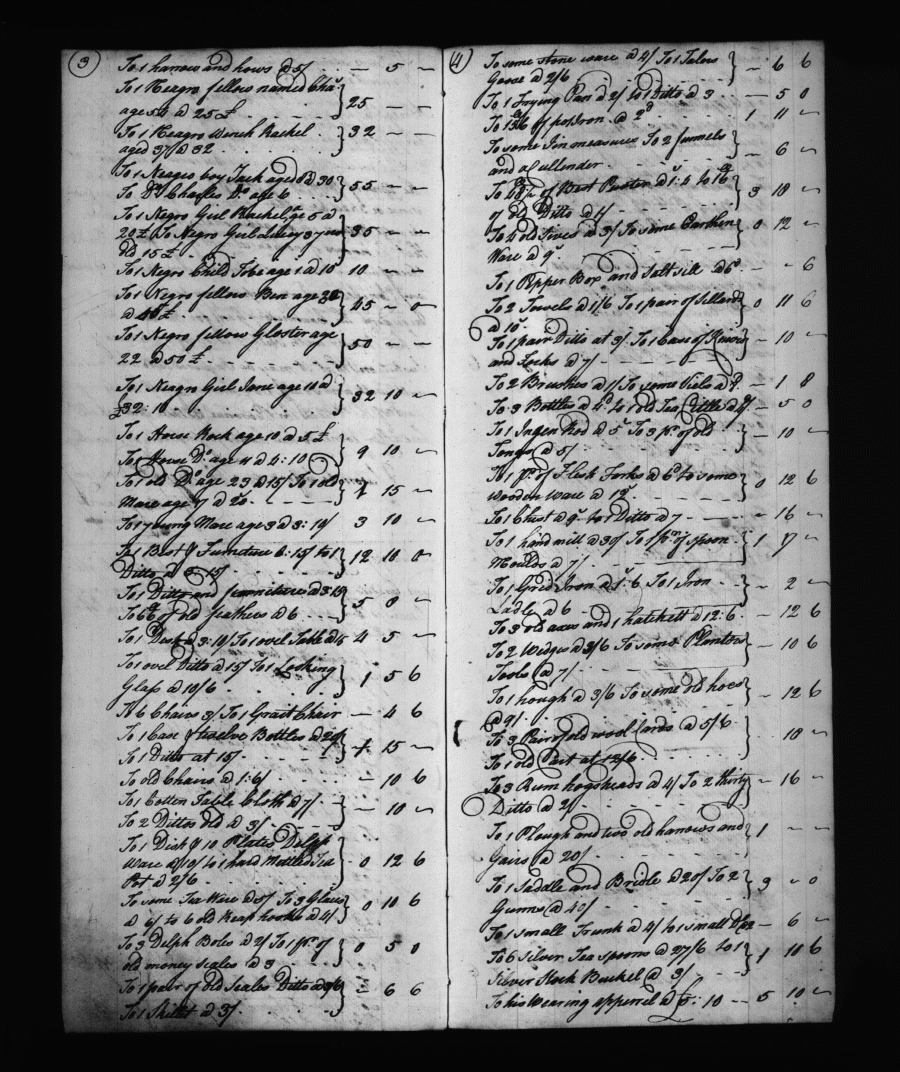 3
To 1 harrow and hows @ 5/ — 5 —
To 1 Neagro fellow named Cha's
age 54 @ 25 £ } 25 — —
To 1 Neagro Wench Rachel
aged 37 @ 32 } 32 — —
To 1 Neagro boy Jack aged 8 @ 30
To Do Charles Do age 6 } 55 — —
To 1 Negro Girl Rachel age 5 @
20 £ To Negro Girl 3 years
old 15 £ } 35 — —
To 1 Negro Child age 1 @ 10 10 — —
To 1 Negro fellow Ben age 32
@ 45 £ } 45 — 0
To 1 Negro fellow Gloster age
22 @ 50 £ } 50 — —
To 1 Neagro Girl Jane age 10 @
£32:10 } 32 10 —
To 1 Horse Rock age 10 @ 5 £
To 1 Horse Do age 11 @ 4:10 } 9 10 —
To 1 old Do age 23 @ 15/ To 1 old
Mare age 7 @ 20 } 15 —
To 1 young Mare age 3 @ 3:10/ 3 10 —
To 1 Bed & Furniture 6:15/ to 1
Ditto @ 5:15/ } 12 10 0
To 1 Ditto and furniture @
To 6 of old feathers @ 6 } 5 0 —
To 1 Desk @ 3:10/ To 1 ovel Table @ 15 4 5 —
To 1 ovel Ditto @ 15/ To 1 Looking
Glass @ 10/6 } 1 5 6
To 6 Chairs 3/ To 1 Grait Chair — 4 6
To 1 Case & twelve Bottles @ 20/
To 1 Ditto at 15/ } 1 15 —
To old Chairs @ 1:6/ — 10 6
To 1 Cotten Table Cloth @ 7/
To 2 Dittos old @ 3/ } — 10 —
To 1 Dish & 10 Plates Delph
Ware @ 10/ to 1 hard Mettled Tea
Pot @ 2/6 } 0 12 6
To some Tea Ware @ 5/ To 3 Glass
@ 6/ to 6 old Reap hooks @ 4/ } 0 10 6
To 3 Delph Boles @ 2/ To 1 pr of
old money scales @ 3 } 0 5 0
To 1 pair of old Scales Ditto @ 3/6
To 1 Skillet @ 3/ } — 6 6
4
To some stone ware @ 4/ To 1 Talors
Goose @ 2/6 } — 6 6
To 1 Frying Pan @ 2/ to 1 Ditto @ 3 — 5 0
To 1 of pot Iron @ 2d 1 11 —
To some Tin measures To 2 funnels
and a Cullender } — 6 —
To 48 ½ of Best Puter @ 1:4 to 16
of old Ditto @ 1/ } 3 18 —
To 4 old @ 3/ To some Earthen
Ware @ 9 } 0 12 —
To 1 Pepper Box and Salt sile @ 6d — — 6
To 2 Towels @ 1/6 To 1 pair of
@ 10 } 0 11 6
To 1 pair Ditto at 3/ To 1 Case of
and Forks @ 7/ } — 10 —
To 2 Brushes @ 1/ To some Viels @ 8 — 1 8
To 3 Bottles @ 4d to 1 old Tea Kittle @ 4/ — 5 0
To 1 Ingen Rod @ 5 To 3 pr of old
Tongs @ 5/ } — 10 —
To 1 pr of Flesh Forks @ 6d to some
wooden ware @ 12 } 0 12 6
To 1 Chest @ 9 to 1 Ditto @ 7 — 16 —
To 1 hand mill @ 30/ To 1 pr of spoon
Moulds @ 7/ } 1 17 —
To 1 Gred Iron @ 1:6 To 1 Iron
Ladle @ 6 — 2 —
To 3 old axes and 1 hatchett @ 12:6 — 12 6
To 2 Wedges @ 3/6 To some Planters
Tools @ 7/ } — 10 6
To 1 hough @ 3/6 To some old hoes
@ 9/ } — 12 6
To 3 Pair of old wool Cards @ 5/6
To 1 old Cart at 12/6 } 18 —
To 3 Rum hogsheads @ 4/ To 2 thirty
Ditto @ 2/ } — 16 —
To 1 Plough and two old harrows and
Gairs @ 20/ } 1 — —
To 1 Saddle and Bridle @ 20/ To 2
Guns @ 40/ } 3 — 0
To 1 small Trunk @ 4/ to 1 small — 6 —
To 6 Silver Tea spoons @ 27/6 to 1
Silver Stock Buckel @ 3/ } 1 10 6
To his Wearing apperrel @ £5:10 — 5 10 —